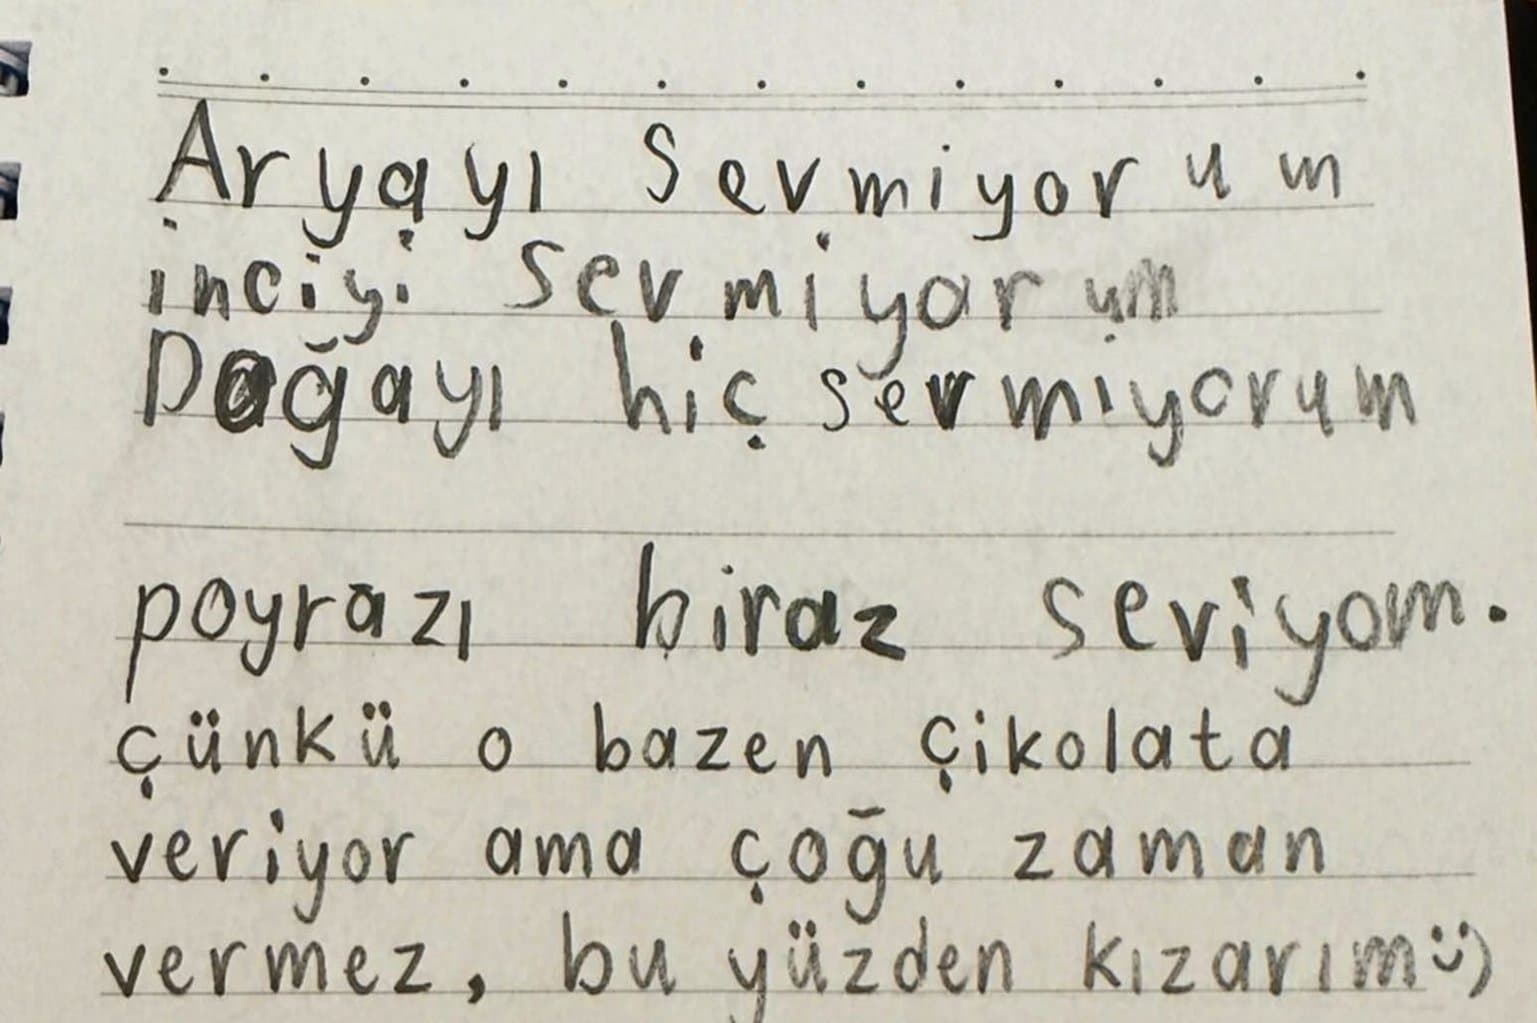 Aryayı sevmiyorum
inciyi sevmiyorum
Doğayı hiç sevmiyorum
poyrazı biraz seviyom.
çünkü o bazen çikolata
veriyor ama çoğu zaman
vermez, bu yüzden kızarım :)